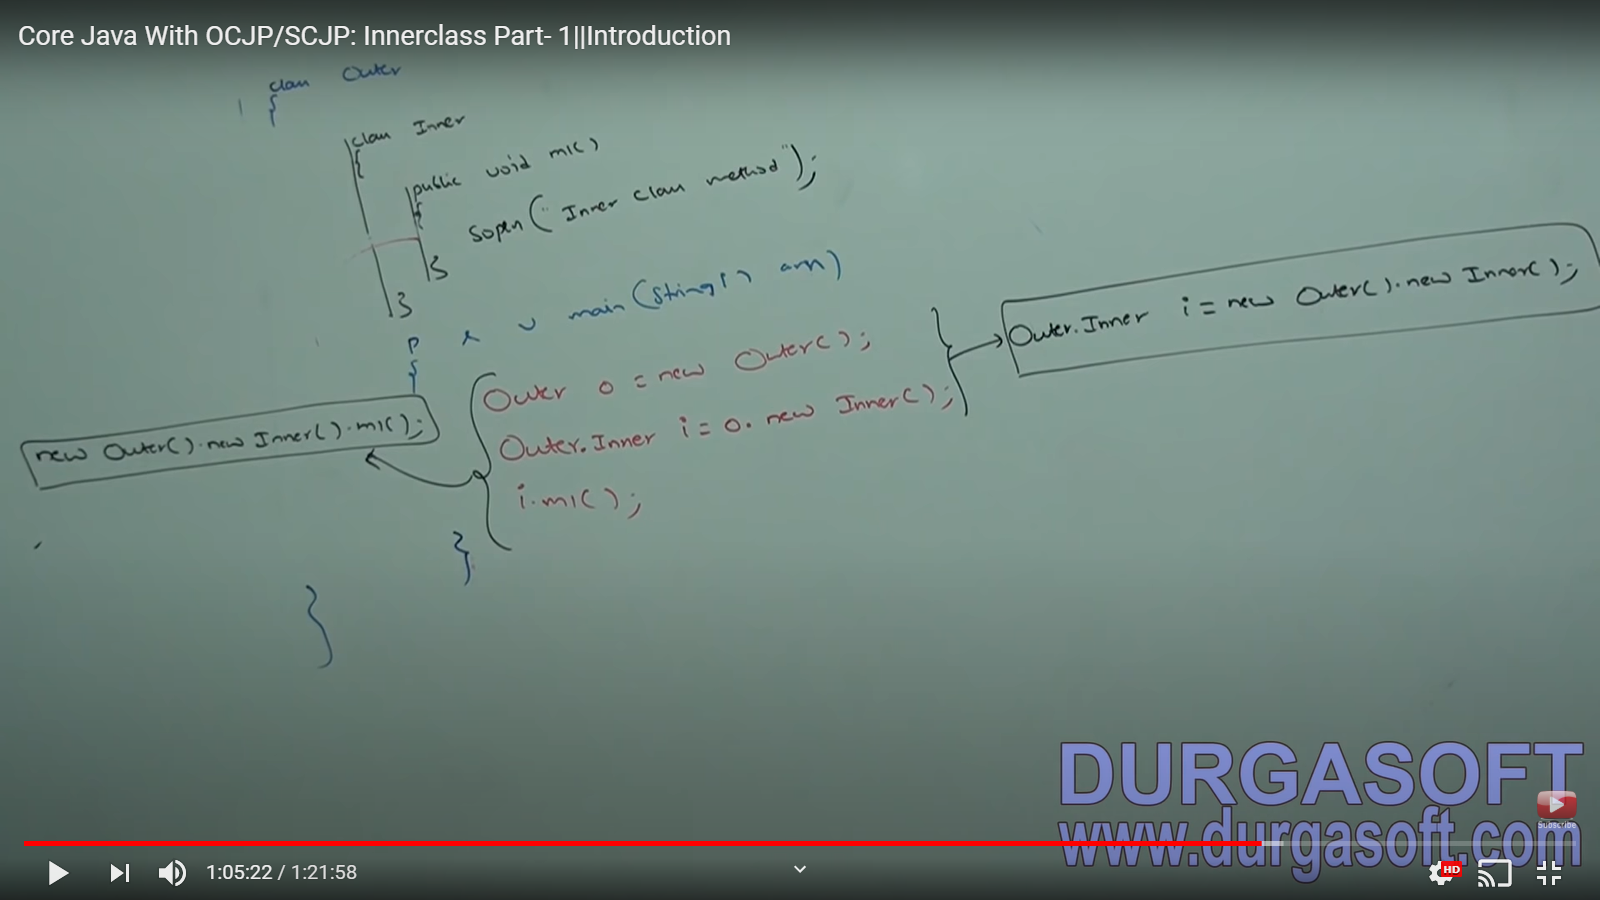 Core Java With OCJP/SCJP: Innerclass Part- 1||Introduction
class Outer
{
class Inner
{
public void m1()
{
Sopln("Inner class method");
}
}
P s v main(String[] args)
{
Outer o = new Outer();
Outer.Inner i = o.new Inner();
i.m1();
}
}
Outer.Inner i = new Outer().new Inner();
new Outer().new Inner().m1();
DURGASOFT
www.durgasoft.com
Subscribe
1:05:22 / 1:21:58
HD